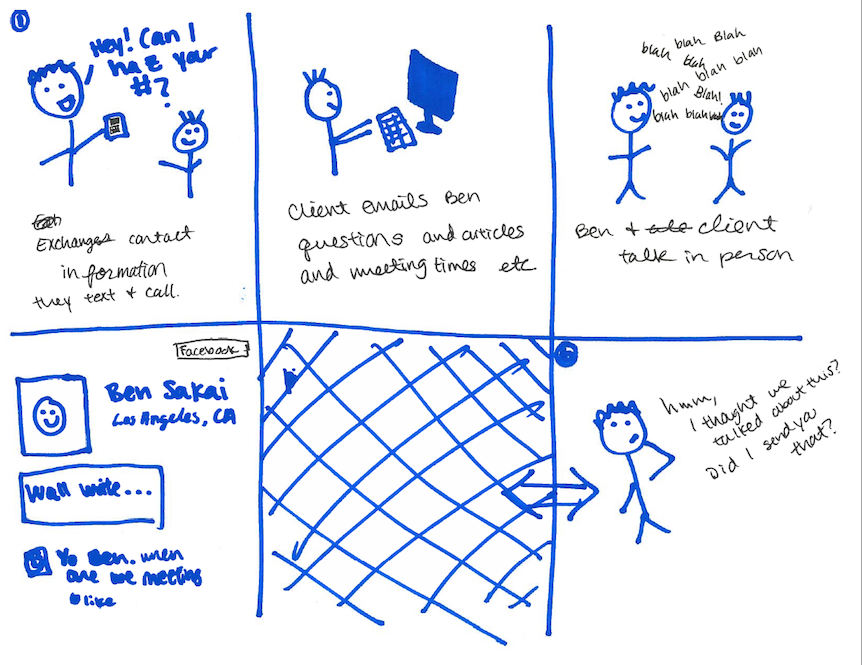 1
Hey! Can I
haz your
#?
Exchanges contact
information
they text & call.
Client emails Ben
questions and articles
and meeting times etc
blah blah Blah
blah
blah blah blah
Blah!
blah blah
Ben & client
talk in person
Facebook
Ben Sakai
Los Angeles, CA
Wall write...
Yo Ben. when
are we meeting
like
6
hmm,
I thaght we
talked about this?
Did I send you
that?